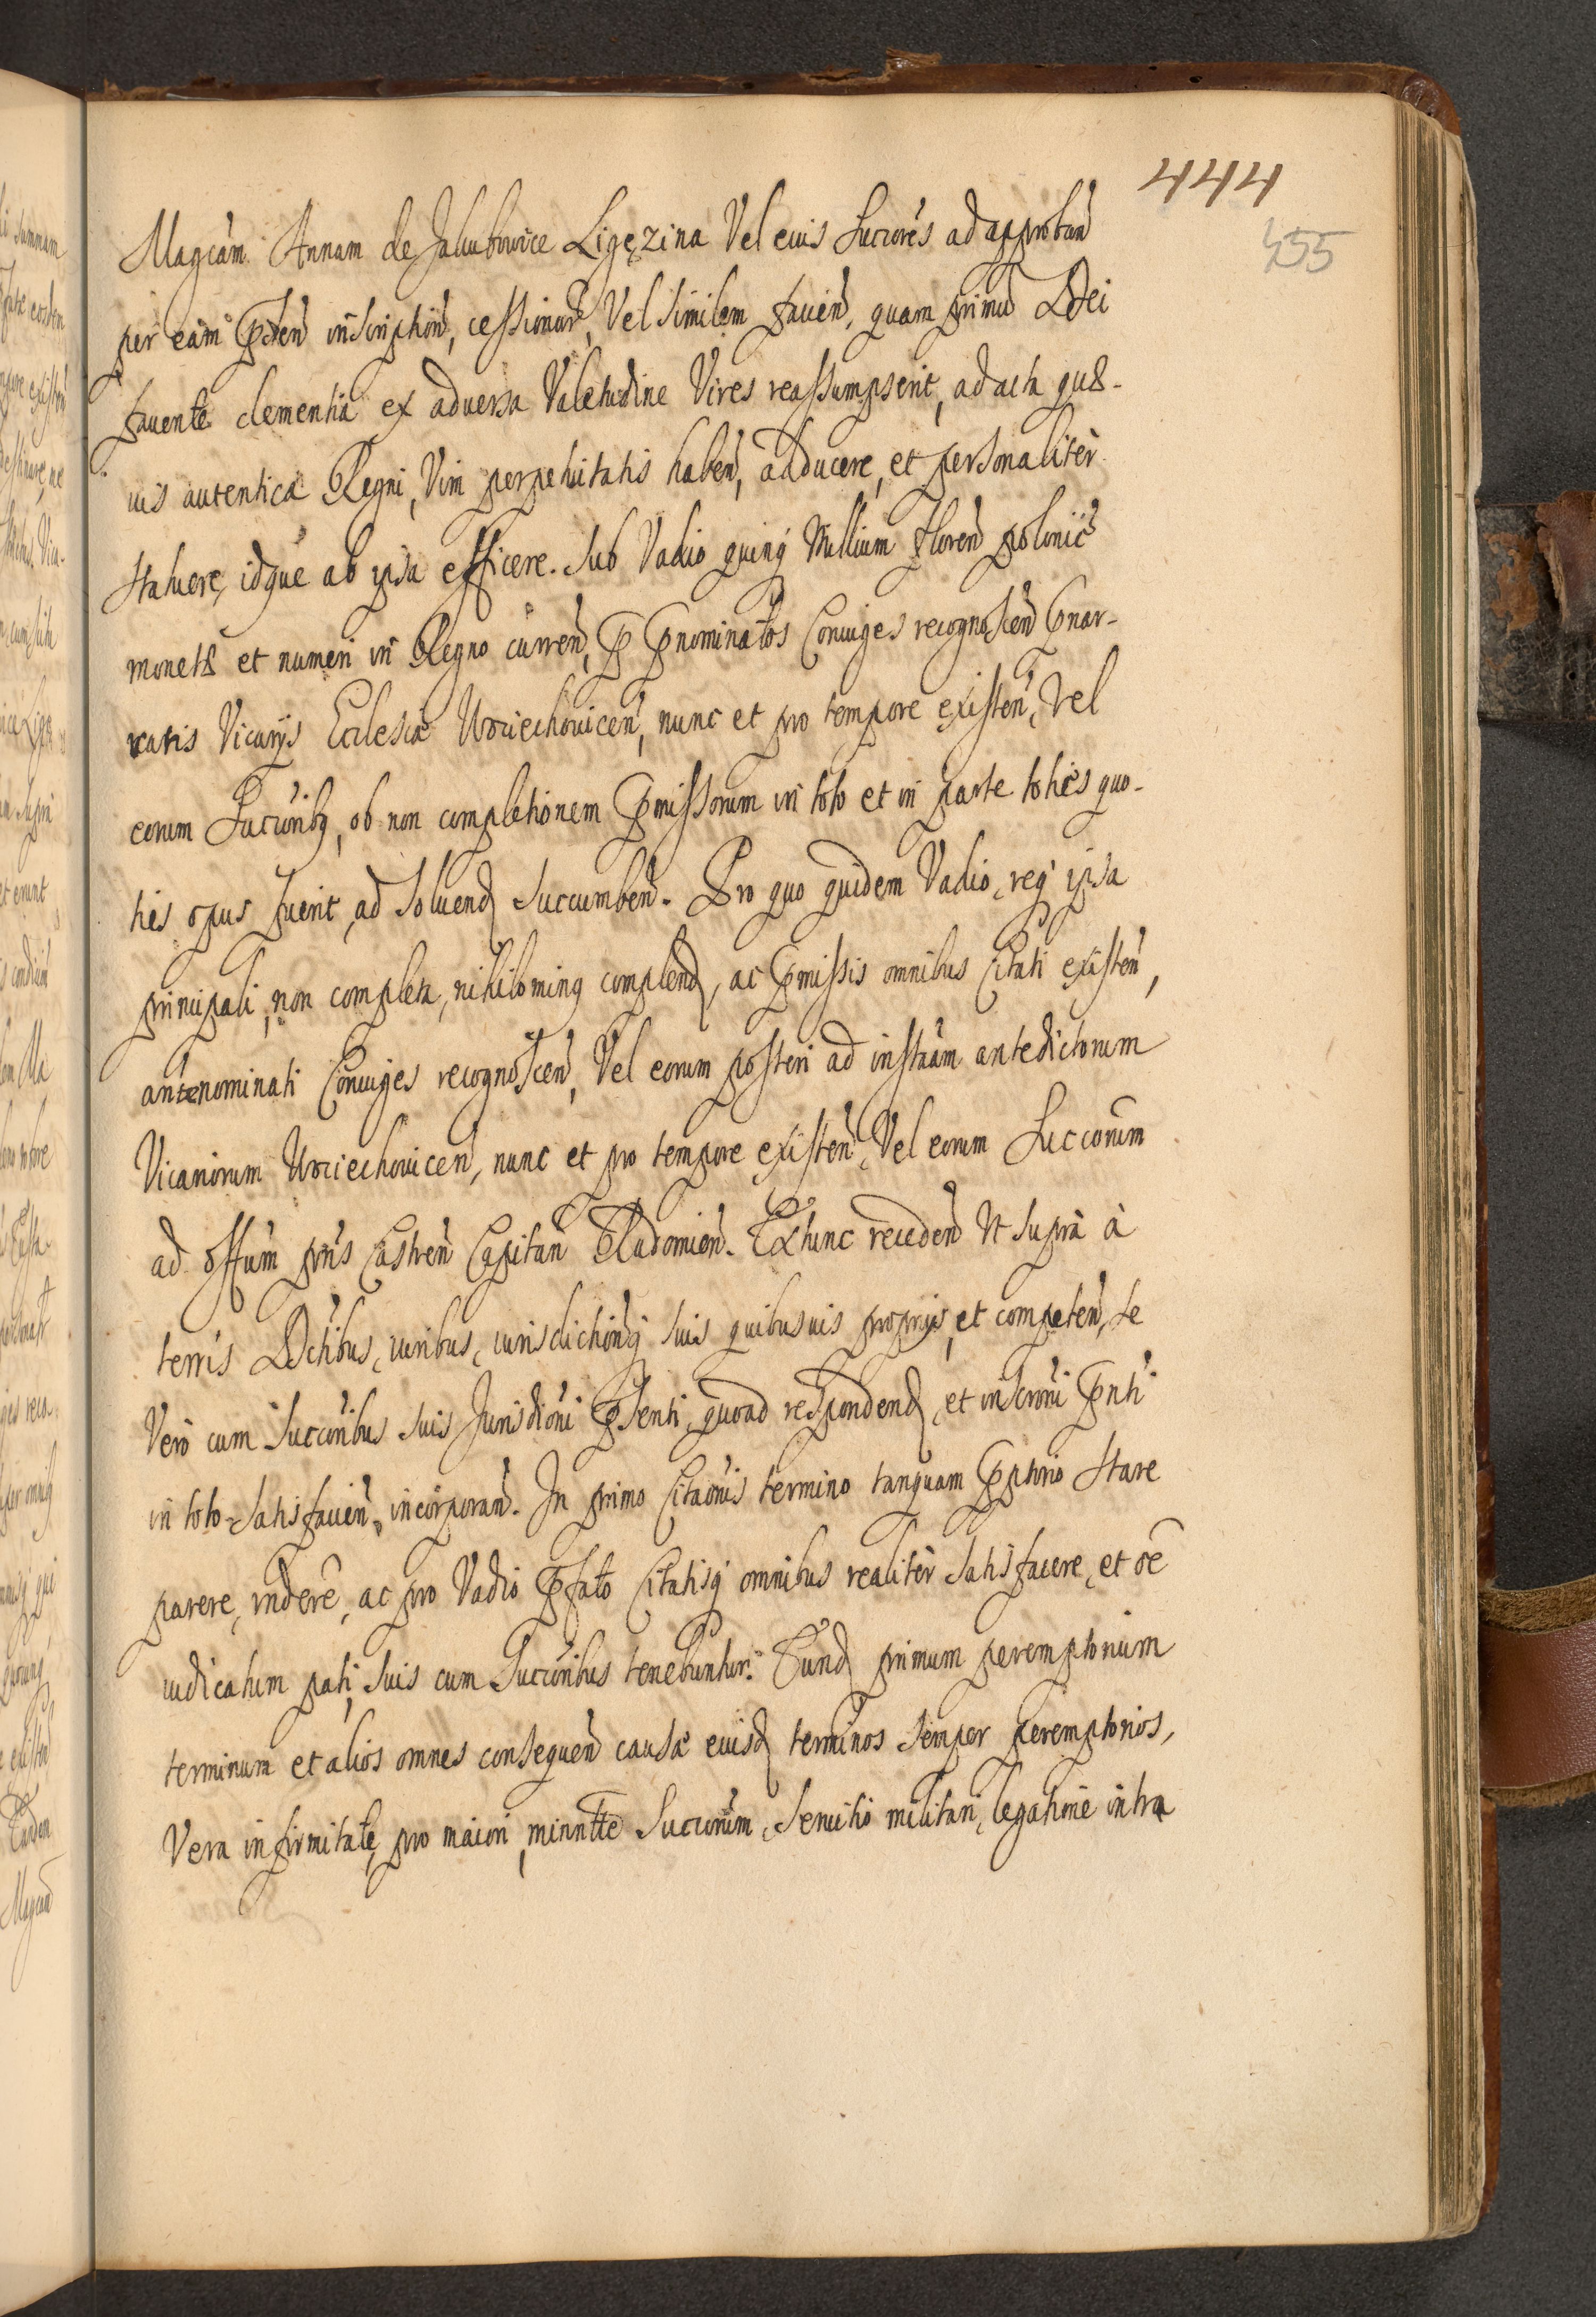 444
455
Magcam Annam de Jakubowice Ligęzina Vel eius Succores ad approban
per eam psten inscription, cessionare, Vel similem facien, quam primu Dei
fauente clementia ex aduersa Valetudine Vires reassumpserit, ad acta quæ-
uis autentica Regni, Vim perpetuitatis haben, adducere, et personaliter
statuere, idque ab ipsa efficere. Sub Vadio quinq Millium floren polonic
monetæ et numeri in Regno curren, p pnominatos Coniuges recognoscen pnar-
ratis Vicarijs Ecclesiæ Wociechouicen, nunc et pro tempore existen, Vel
eorum Succoribq, ob non completionem pmissorum in toto et in parte toties quo-
ties opus fuerit, ad soluend succumben. Pro quo quidem Vadio, req ipsa
principali, non completa, nihilominq complend, ac pmissis omnibus Citati existen,
antenominati Coniuges recognoscen, Vel eorum posteri ad instam antedictorum
Vicariorum Wociechouicen, nunc et pro tempore existen, Vel eorum Succorum
ad offum pns Castren Capitan Radomien. Extunc receden Vt supra à
terris Dctibus, iuribus, iurisdictionq suis quibusuis proprijs, et competen, se
Vero cum Succoribus suis Jurisdioni psenti, quoad respondend, et inscroni pnti
in toto satisfacien, incorporan. In primo Citaonis termino tanquam pptorio stare
parere, rndere, ac pro Vadio pfato Citatisq omnibus realiter satisfacere, et oe
iudicatum pati, suis cum Succoribus tenebuntur. Eund primum peremptorium
terminum et alios omnes consequen causæ eiusd terminos semper peremptorios,
Vera infirmitate, pro maiori, minntte Succorum, seruitio militari, legatione intra